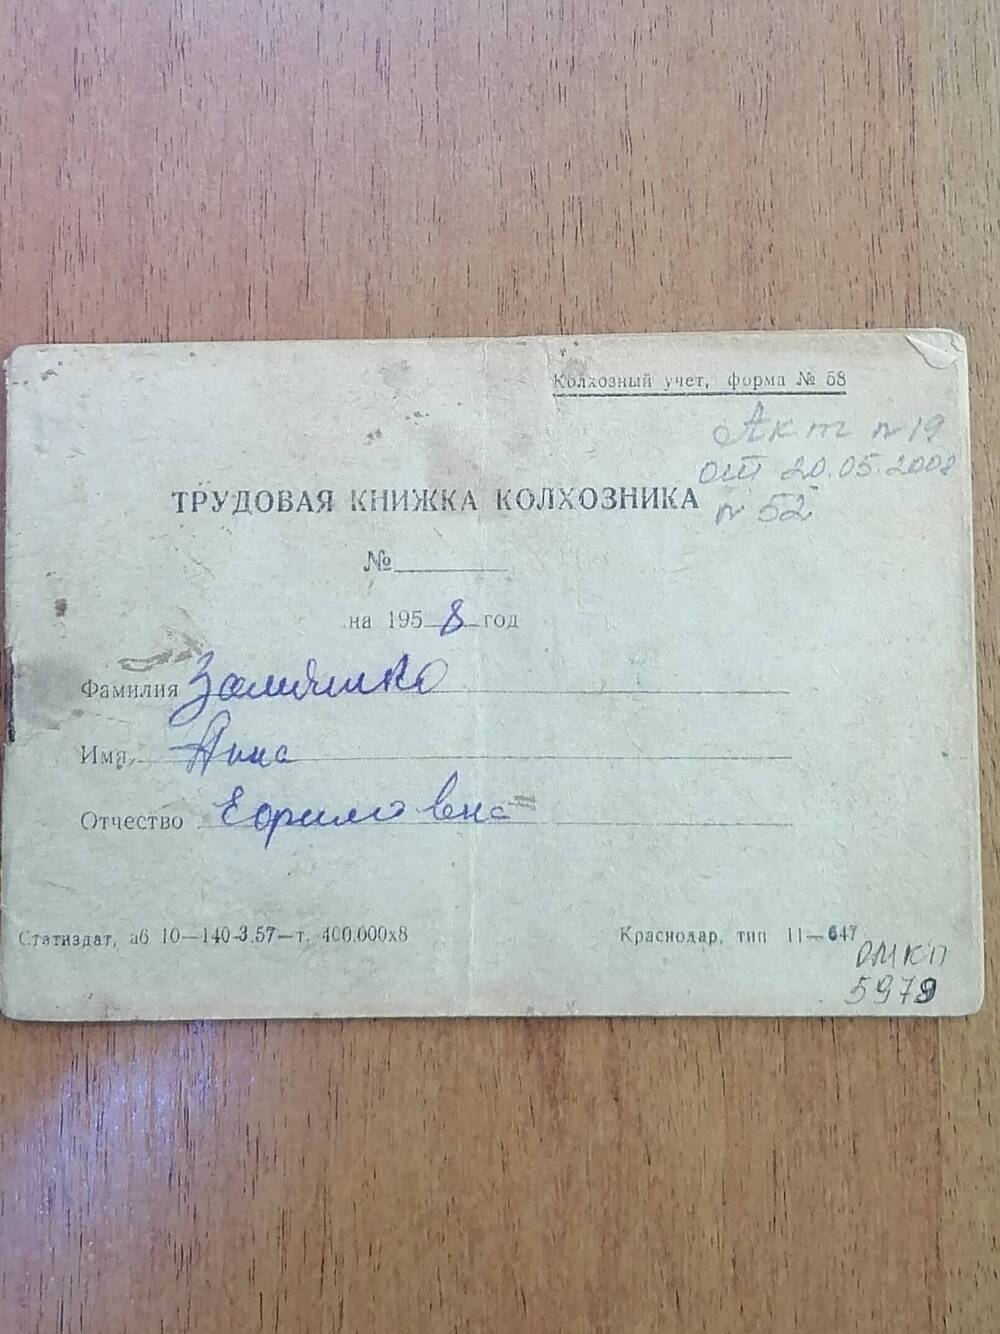 Колхозный учет, форма № 58
Акт n 19
от 20.05.2008
n 52
ТРУДОВАЯ КНИЖКА КОЛХОЗНИКА
№
на 1958 год
Фамилия
Имя Анна
Отчество
Статиздат, аб 10—140-3.57—т. 400.000х8
Краснодар, тип 11—647
ОМКП
5979